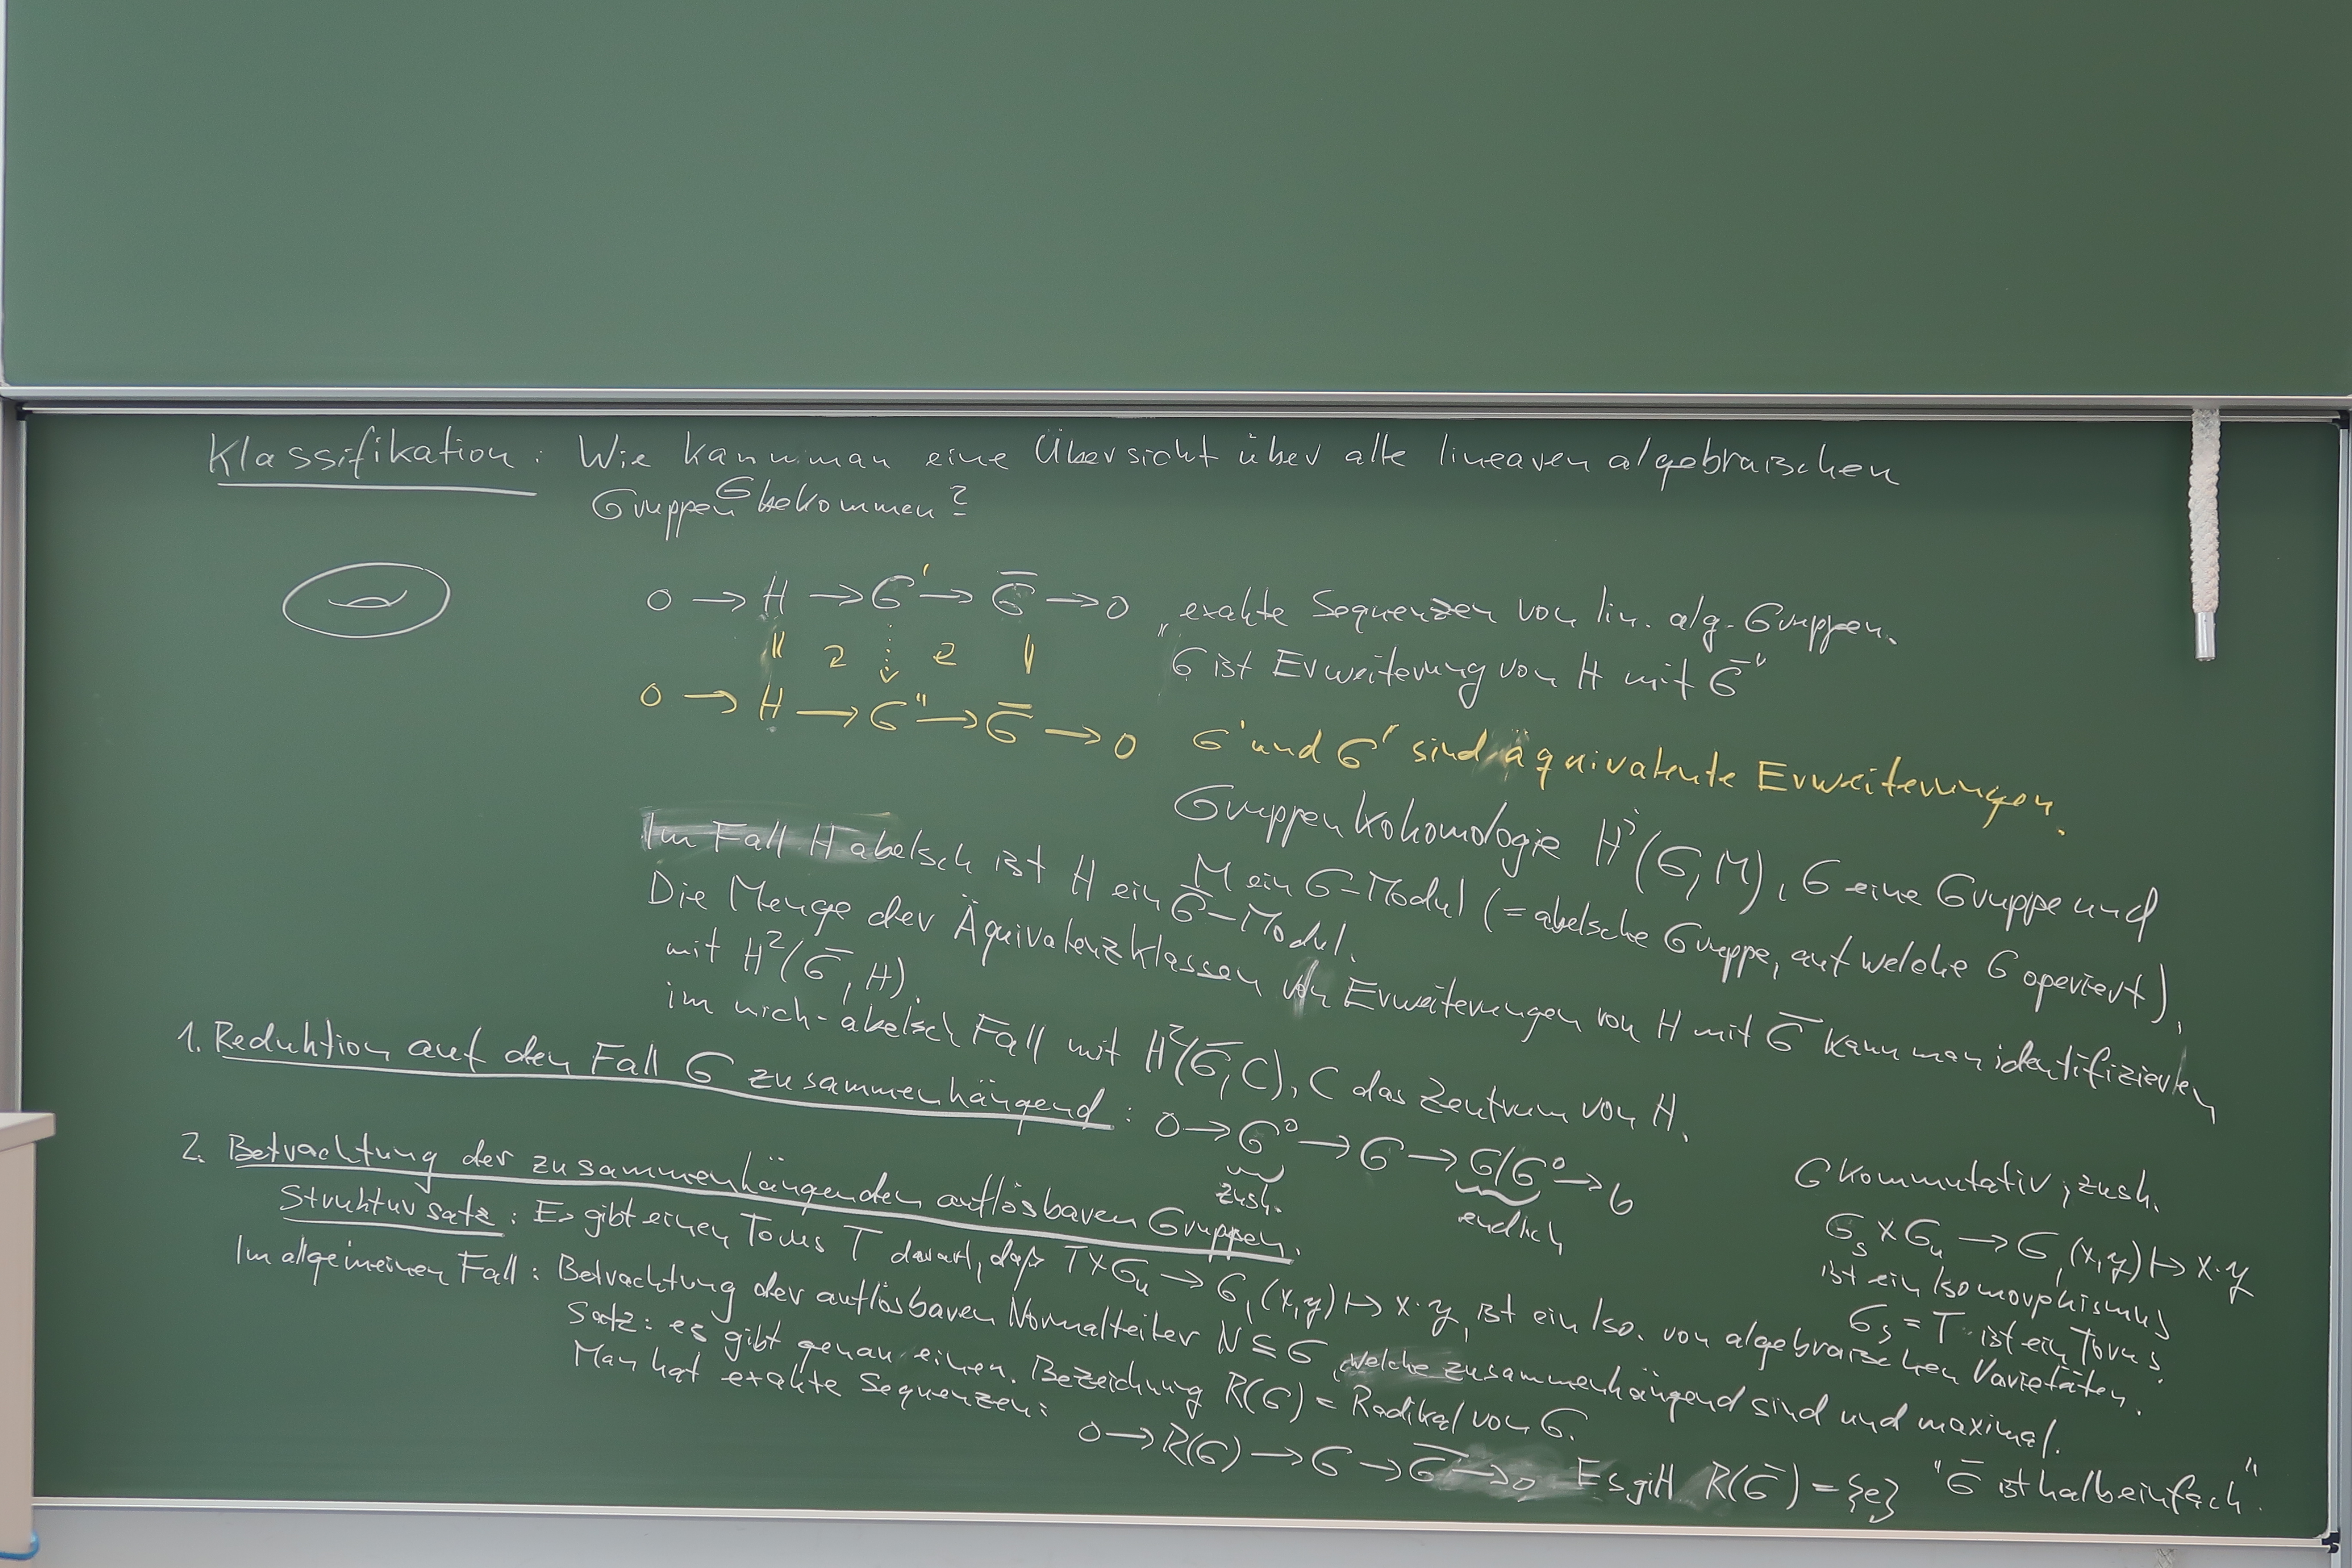 Klassifikation: Wie kann man eine Übersicht über alle linearen algebraischen
Gruppen G bekommen?
0 → H → G' → G̅ → 0 , exakte Sequenzen von lin. alg. Gruppen.
"G ist Erweiterung von H mit G̅"
0 → H → G'' → G̅ → 0 G' und G'' sind äquivalente Erweiterungen.
Gruppenkohomologie Hⁱ(G,M), G eine Gruppe und
M ein G-Modul (= abelsche Gruppe, auf welche G operiert),
Im Fall H abelsch ist H ein G̅-Modul.
Die Menge der Äquivalenzklassen von Erweiterungen von H mit G̅ kann man identifizieren
mit H²(G̅, H).
im nich-abelsch Fall mit H²(G̅, C), C das Zentrum von H.
1. Reduktion auf den Fall G zusammenhängend: 0 → G⁰ → G → G/G⁰ → 0
zush. endlich
2. Betrachtung der zusammenhängenden auflösbaren Gruppen.
Struktursatz: Es gibt einen Torus T derart, daß T×Gᵤ → G, (x,y) ↦ x·y, ist ein Iso. von algebraischen Varietäten.
G kommutativ, zush.
Gₛ × Gᵤ → G, (x,y) ↦ x·y
ist ein Isomorphismus
Gₛ = T ist ein Torus.
Im allgemeinen Fall: Betrachtung der auflösbaren Normalteiler N ⊆ G, welche zusammenhängend sind und maximal.
Satz: es gibt genau einen. Bezeichnung R(G) = Radikal von G.
Man hat exakte Sequenzen:
0 → R(G) → G → G̅ → 0 Es gilt R(G̅) = {e} "G̅ ist halbeinfach".